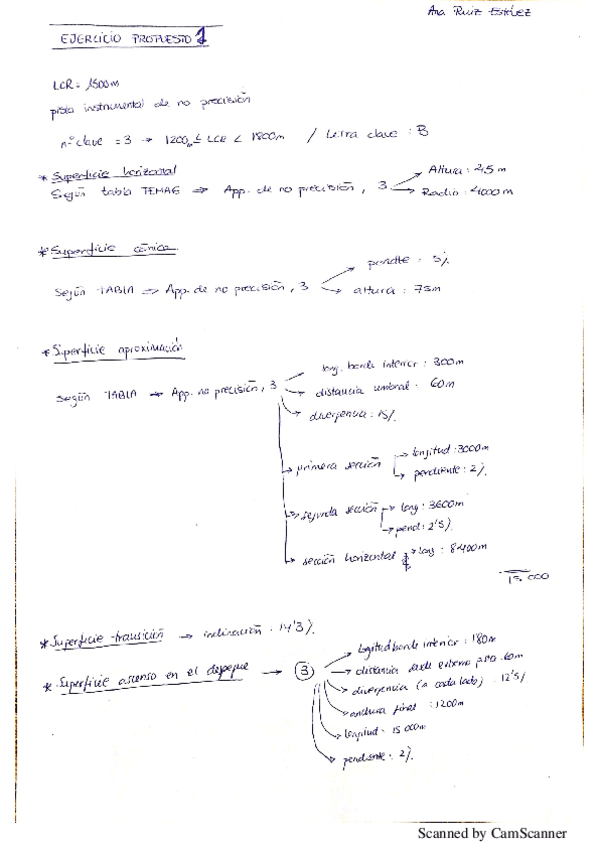 Ana Ruiz Estévez
EJERCICIO PROPUESTO 1
LCR = 1500m
pista instrumental de no precisión
nº clave = 3 → 1200 ≤ LCR < 1800m / Letra clave : B
* Superficie horizontal
Según tabla TEMA6 ⇒ App. de no precisión, 3
Altura : 45 m
Radio : 4000 m
* Superficie cónica
Según TABLA ⇒ App. de no precisión, 3
pendte : 5%
altura : 75m
* Superficie aproximación
Según TABLA → App. no precisión, 3
long. borde interior : 300m
distancia umbral : 60m
divergencia : 15%
primera sección
longitud : 3000m
pendiente : 2%
segunda sección
long : 3600m
pend : 2'5%
sección horizontal → long : 8400m
15.000
* Superficie transición → inclinación : 14'3%
* Superficie ascenso en el despegue → 3
longitud borde interior : 180m
distancia desde extremo pista : 60m
divergencia (a cada lado) : 12'5%
anchura final : 1200m
longitud : 15000m
pendiente : 2%
Scanned by CamScanner